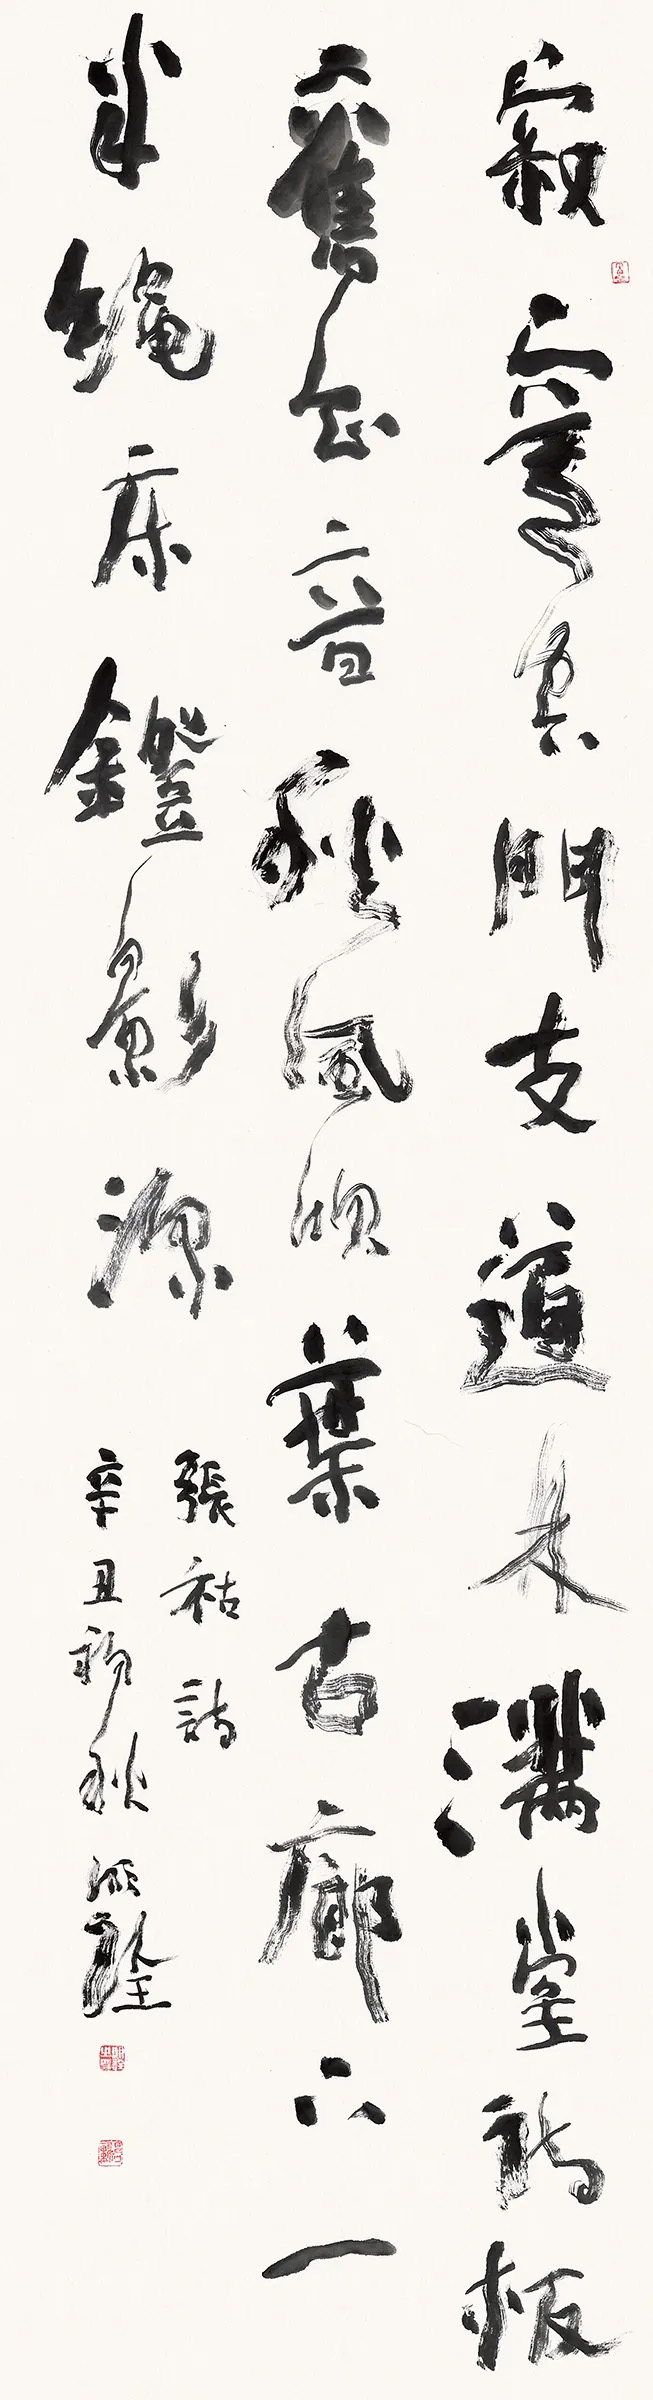 寂寞空門支道林滿堂詩板
舊知音秋風吹葉古廊下一
半繩床鐙影深
張祜詩
辛丑初秋